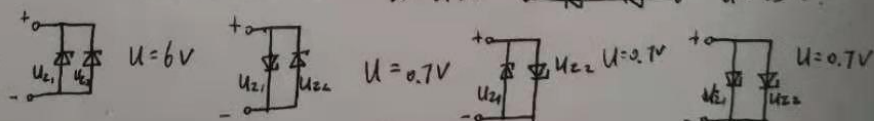 + U_Z1 U_Z2 - U=6V
+ U_Z1 U_Z2 - U=0.7V
+ U_Z1 U_Z2 - U=0.7V
+ U_Z1 U_Z2 - U=0.7V